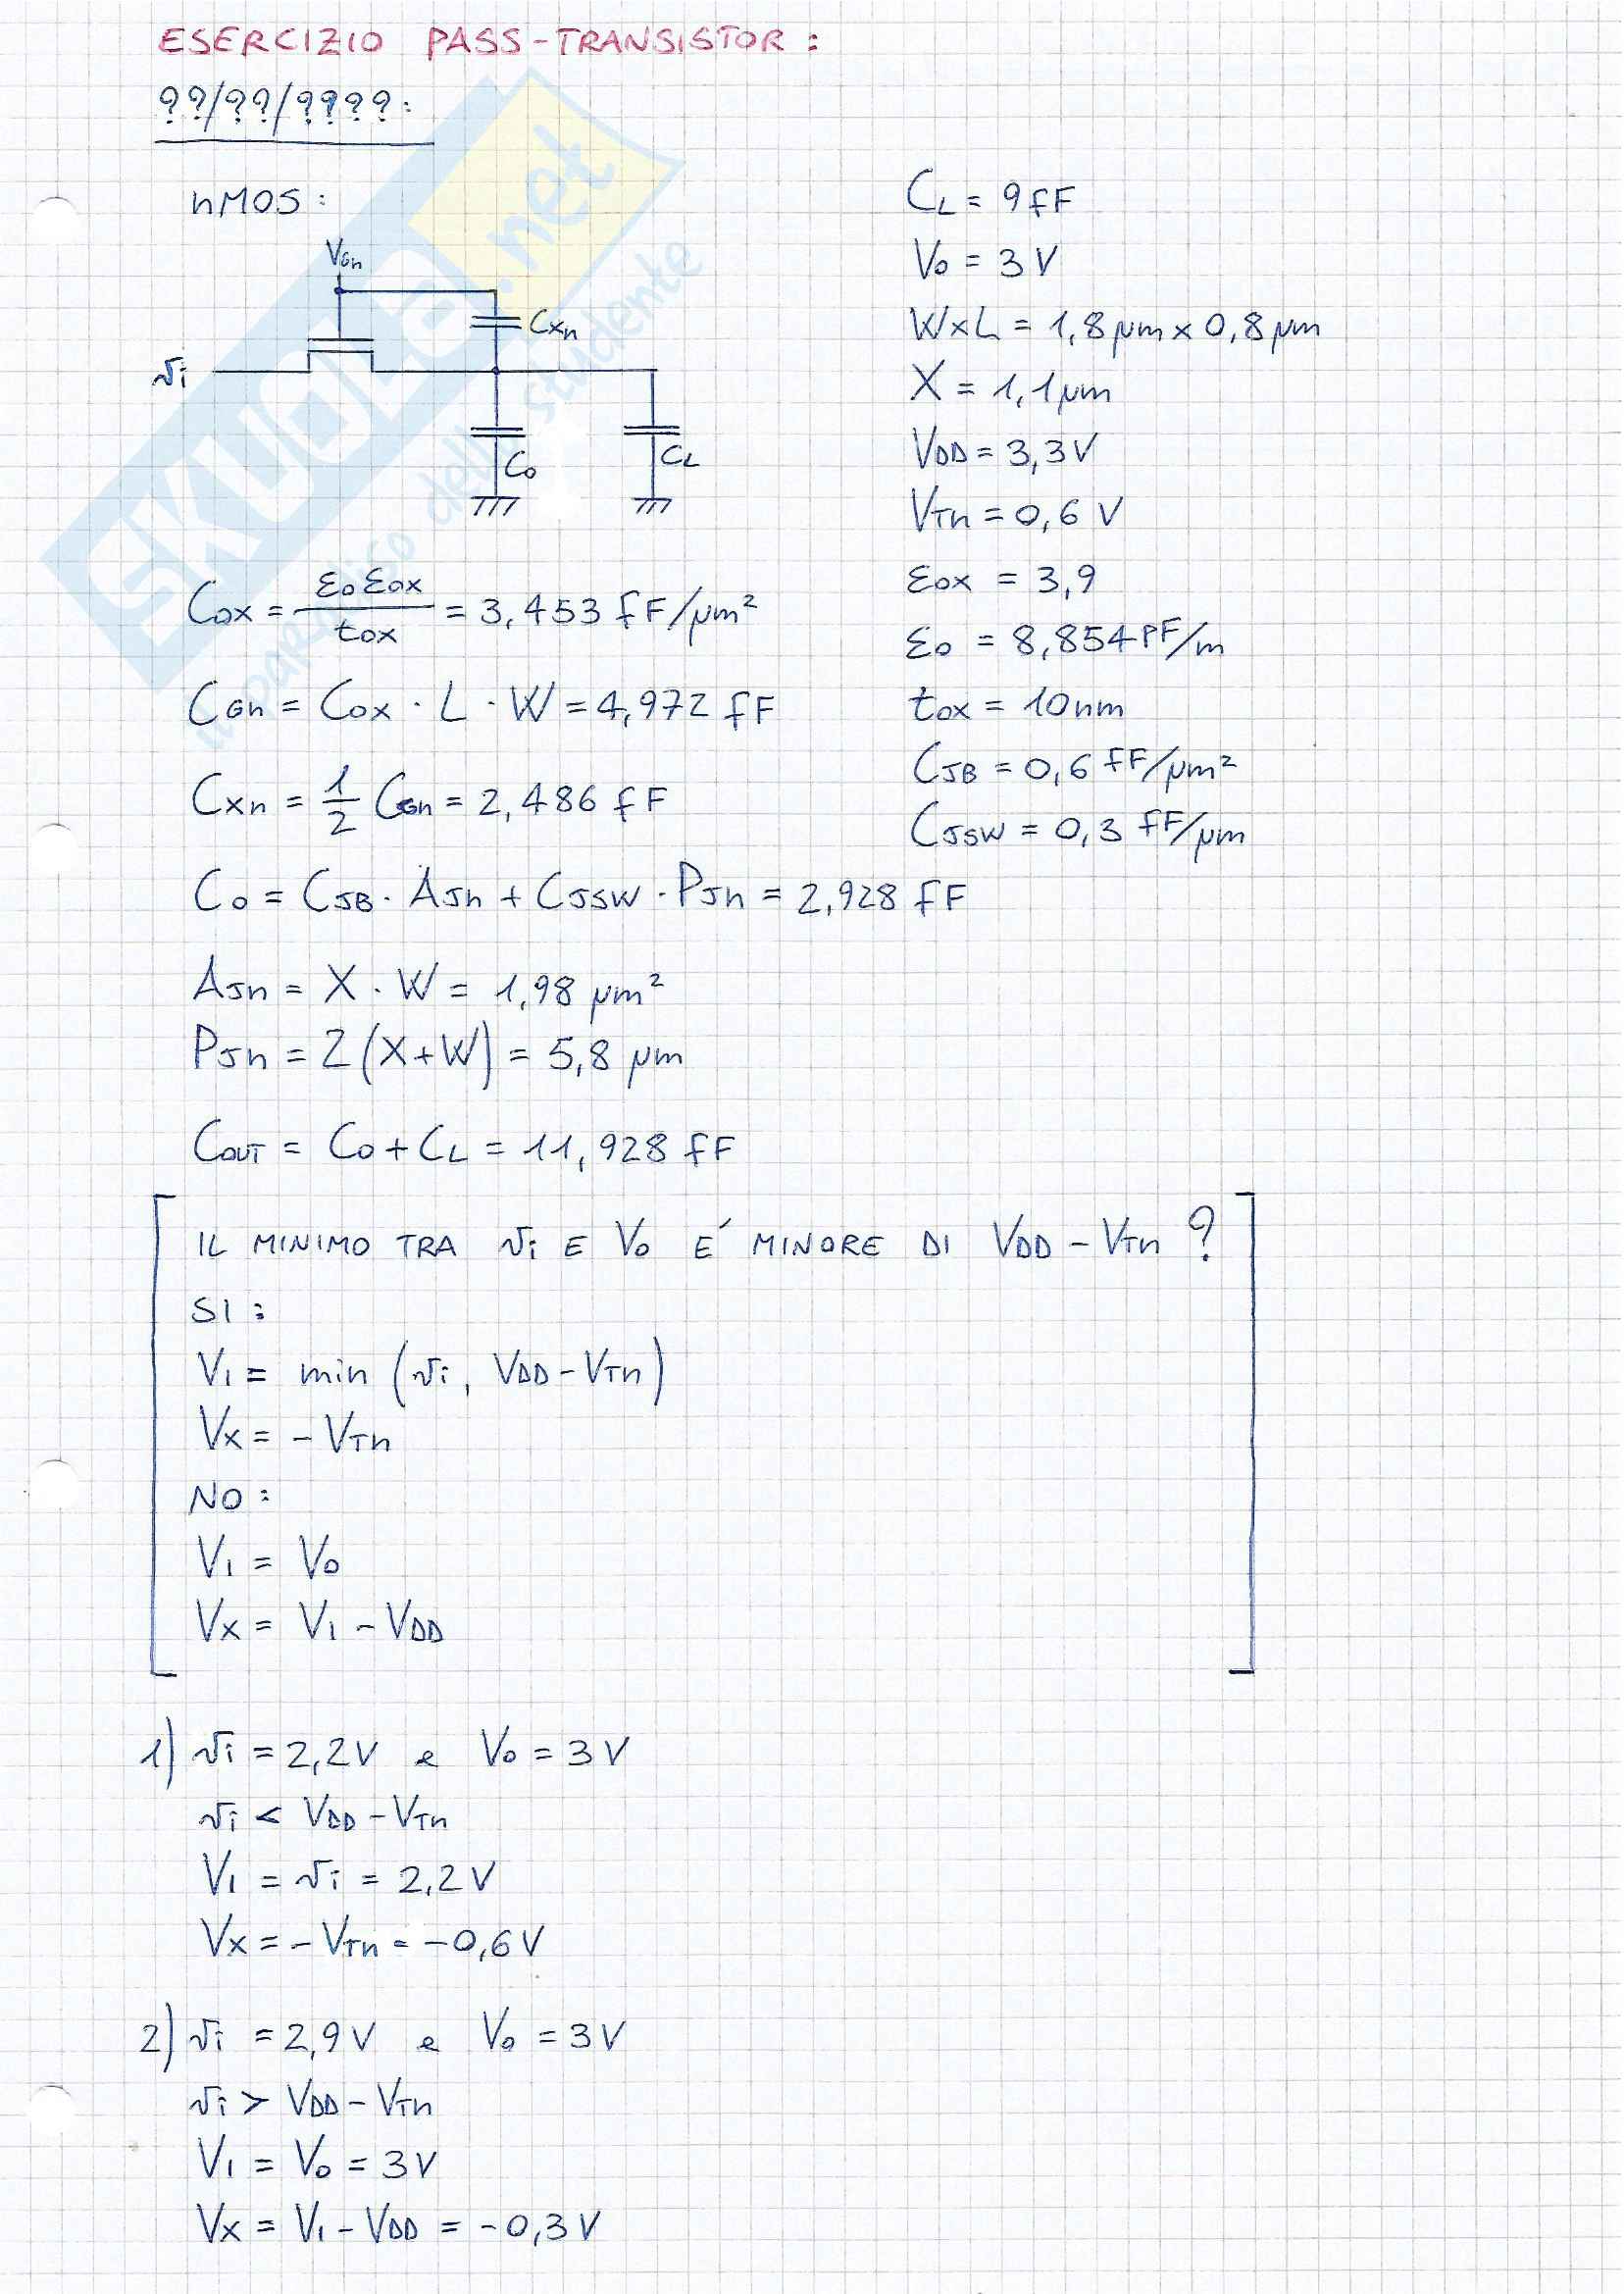 ESERCIZIO PASS-TRANSISTOR :
??/??/???? :
nMOS :
VGn
Cxn
vi
Co
CL
CL = 9 fF
Vo = 3 V
W×L = 1,8 µm × 0,8 µm
X = 1,1 µm
VDD = 3,3 V
VTn = 0,6 V
εox = 3,9
εo = 8,854 PF/m
tox = 10 nm
CJB = 0,6 fF/µm²
CJSW = 0,3 fF/µm
Cox = εo εox / tox = 3,453 fF/µm²
CGn = Cox · L · W = 4,972 fF
Cxn = 1/2 CGn = 2,486 fF
Co = CJB · AJn + CJSW · PJn = 2,928 fF
AJn = X · W = 1,98 µm²
PJn = 2 (X+W) = 5,8 µm
COUT = Co + CL = 11,928 fF
IL MINIMO TRA vi E Vo E' MINORE DI VDD - VTn ?
SI :
V1 = min (vi, VDD - VTn)
Vx = - VTn
NO :
V1 = Vo
Vx = V1 - VDD
1) vi = 2,2 V e Vo = 3 V
vi < VDD - VTn
V1 = vi = 2,2 V
Vx = - VTn = -0,6 V
2) vi = 2,9 V e Vo = 3 V
vi > VDD - VTn
V1 = Vo = 3 V
Vx = V1 - VDD = -0,3 V
SKUOLA.net
il paradiso dello studente